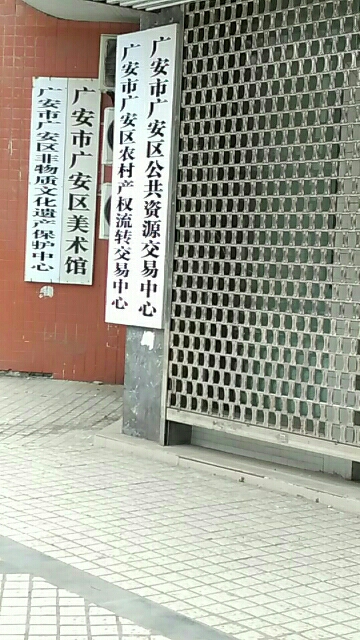 广安市广安区公共资源交易中心
广安市广安区农村产权流转交易中心
广安市广安区美术馆
广安市广安区非物质文化遗产保护中心